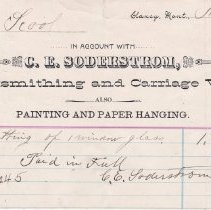 Clancy, Mont.,
School
IN ACCOUNT WITH
C. E. SODERSTROM,
smithing and Carriage
ALSO
PAINTING AND PAPER HANGING.
of 1 window glass 1.
Paid in Full
45 C.E. Soderstrom